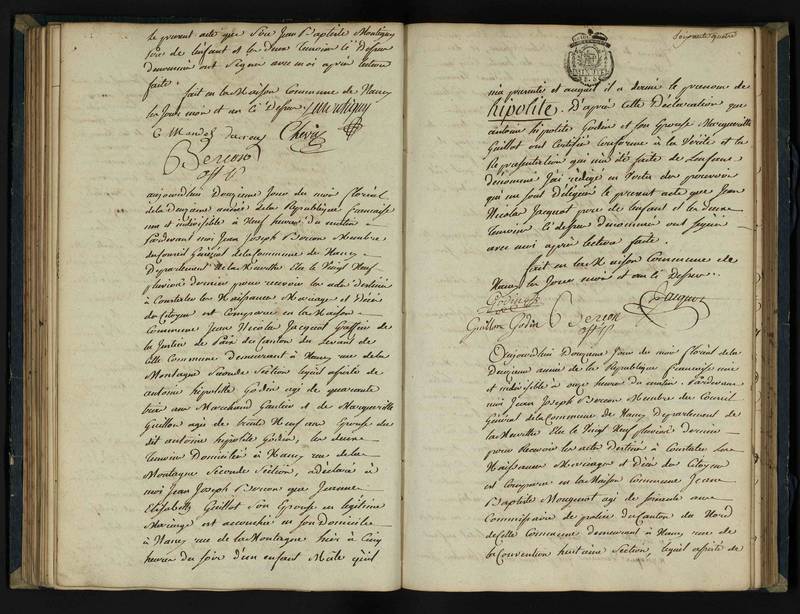 le present acte que Sieur Jean Baptiste Montigny
pere de Lenfant et les Deux temoins ci Dessus
denommés ont Signé avec moi apres lecture
faite.
fait en la Maison Commune de Nancy
les Jour mois et an ci Dessus Montigny
C Mandel
Bercon
off. p.
aujourdhui Douzieme Jour du mois floréal
de la Deuxieme année de la Republique francaise
une et indivisible à Neuf heures du matin
Pardevant moi Jean Joseph Bercon Membre
du Conseil Général de la Commune de Nancy
Departement de la Meurthe Elu le Vingt Neuf
pluviose dernier pour recevoir les actes destinés
à Constater les Naissances Mariages et Décès
des Citoyens est Comparu en la Maison
Commune Jean Nicolas Jacquot Greffier de
la Justice de Paix du Canton du Levant de
cette Commune demeurant à Nancy rue de la
Montagne Seconde Section lequel assisté de
antoine hipolitte Godin agé de quarante
trois ans Marchand Gantier et de Margueritte
Guillon agée de trente Neuf ans Epouse du
dit antoine hipolitte Godin, les deux
temoins Domiciliés à Nancy rue de la
Montagne Seconde Section, a déclaré à
moi Jean Joseph Bercon que Jeanne
Elisabeth Guillot Son Epouse en légitime
Mariage est accouchée en Son Domicile
à Nancy rue de la Montagne hier à Cinq
heures du Soir d'un enfant Mâle qu'il
Soixante quatre
m'a presenté et auquel il a donné le prenom de
hipolite. D'après cette Déclaration que
antoine hipolite Godin et Son Epouse Margueritte
Guillot ont Certifié Conforme à la Verité et la
Representation qui m'a été faite de Lenfant
denommé J'ai redigé en Vertu des pouvoirs
qui me Sont délégués le present acte que Jean
Nicolas Jacquot pere de Lenfant et les deux
temoins ci dessus denommés ont Signé
avec moi apres lecture faite.
fait en la Maison Commune de
Nancy les Jour mois et an ci Dessus
Godin
Jacquot
Guillon Godin Bercon
off. p.
Aujourdhui Douzieme Jour du mois floréal de la
Deuxieme année de la Republique francaise une
et indivisible à onze heures du matin. Pardevant
moi Jean Joseph Bercon Membre du Conseil
Général de la Commune de Nancy Departement de
la Meurthe Elu le Vingt Neuf pluviose Dernier
pour Recevoir les actes Destinés à Constater les
Naissances Mariages et Décès des Citoyens
est Comparu en la Maison Commune Jean
Baptiste Mougenot agé de Soixante ans
Commissaire de police du Canton du Nord
de Cette Commune demeurant à Nancy rue de
la Convention huitieme Section, lequel assisté de